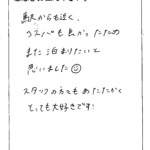 駅からも近く、
コスパも良かったため
また泊まりたいと
思いました☺
スタッフの方もあたたかく
とっても大好きです!